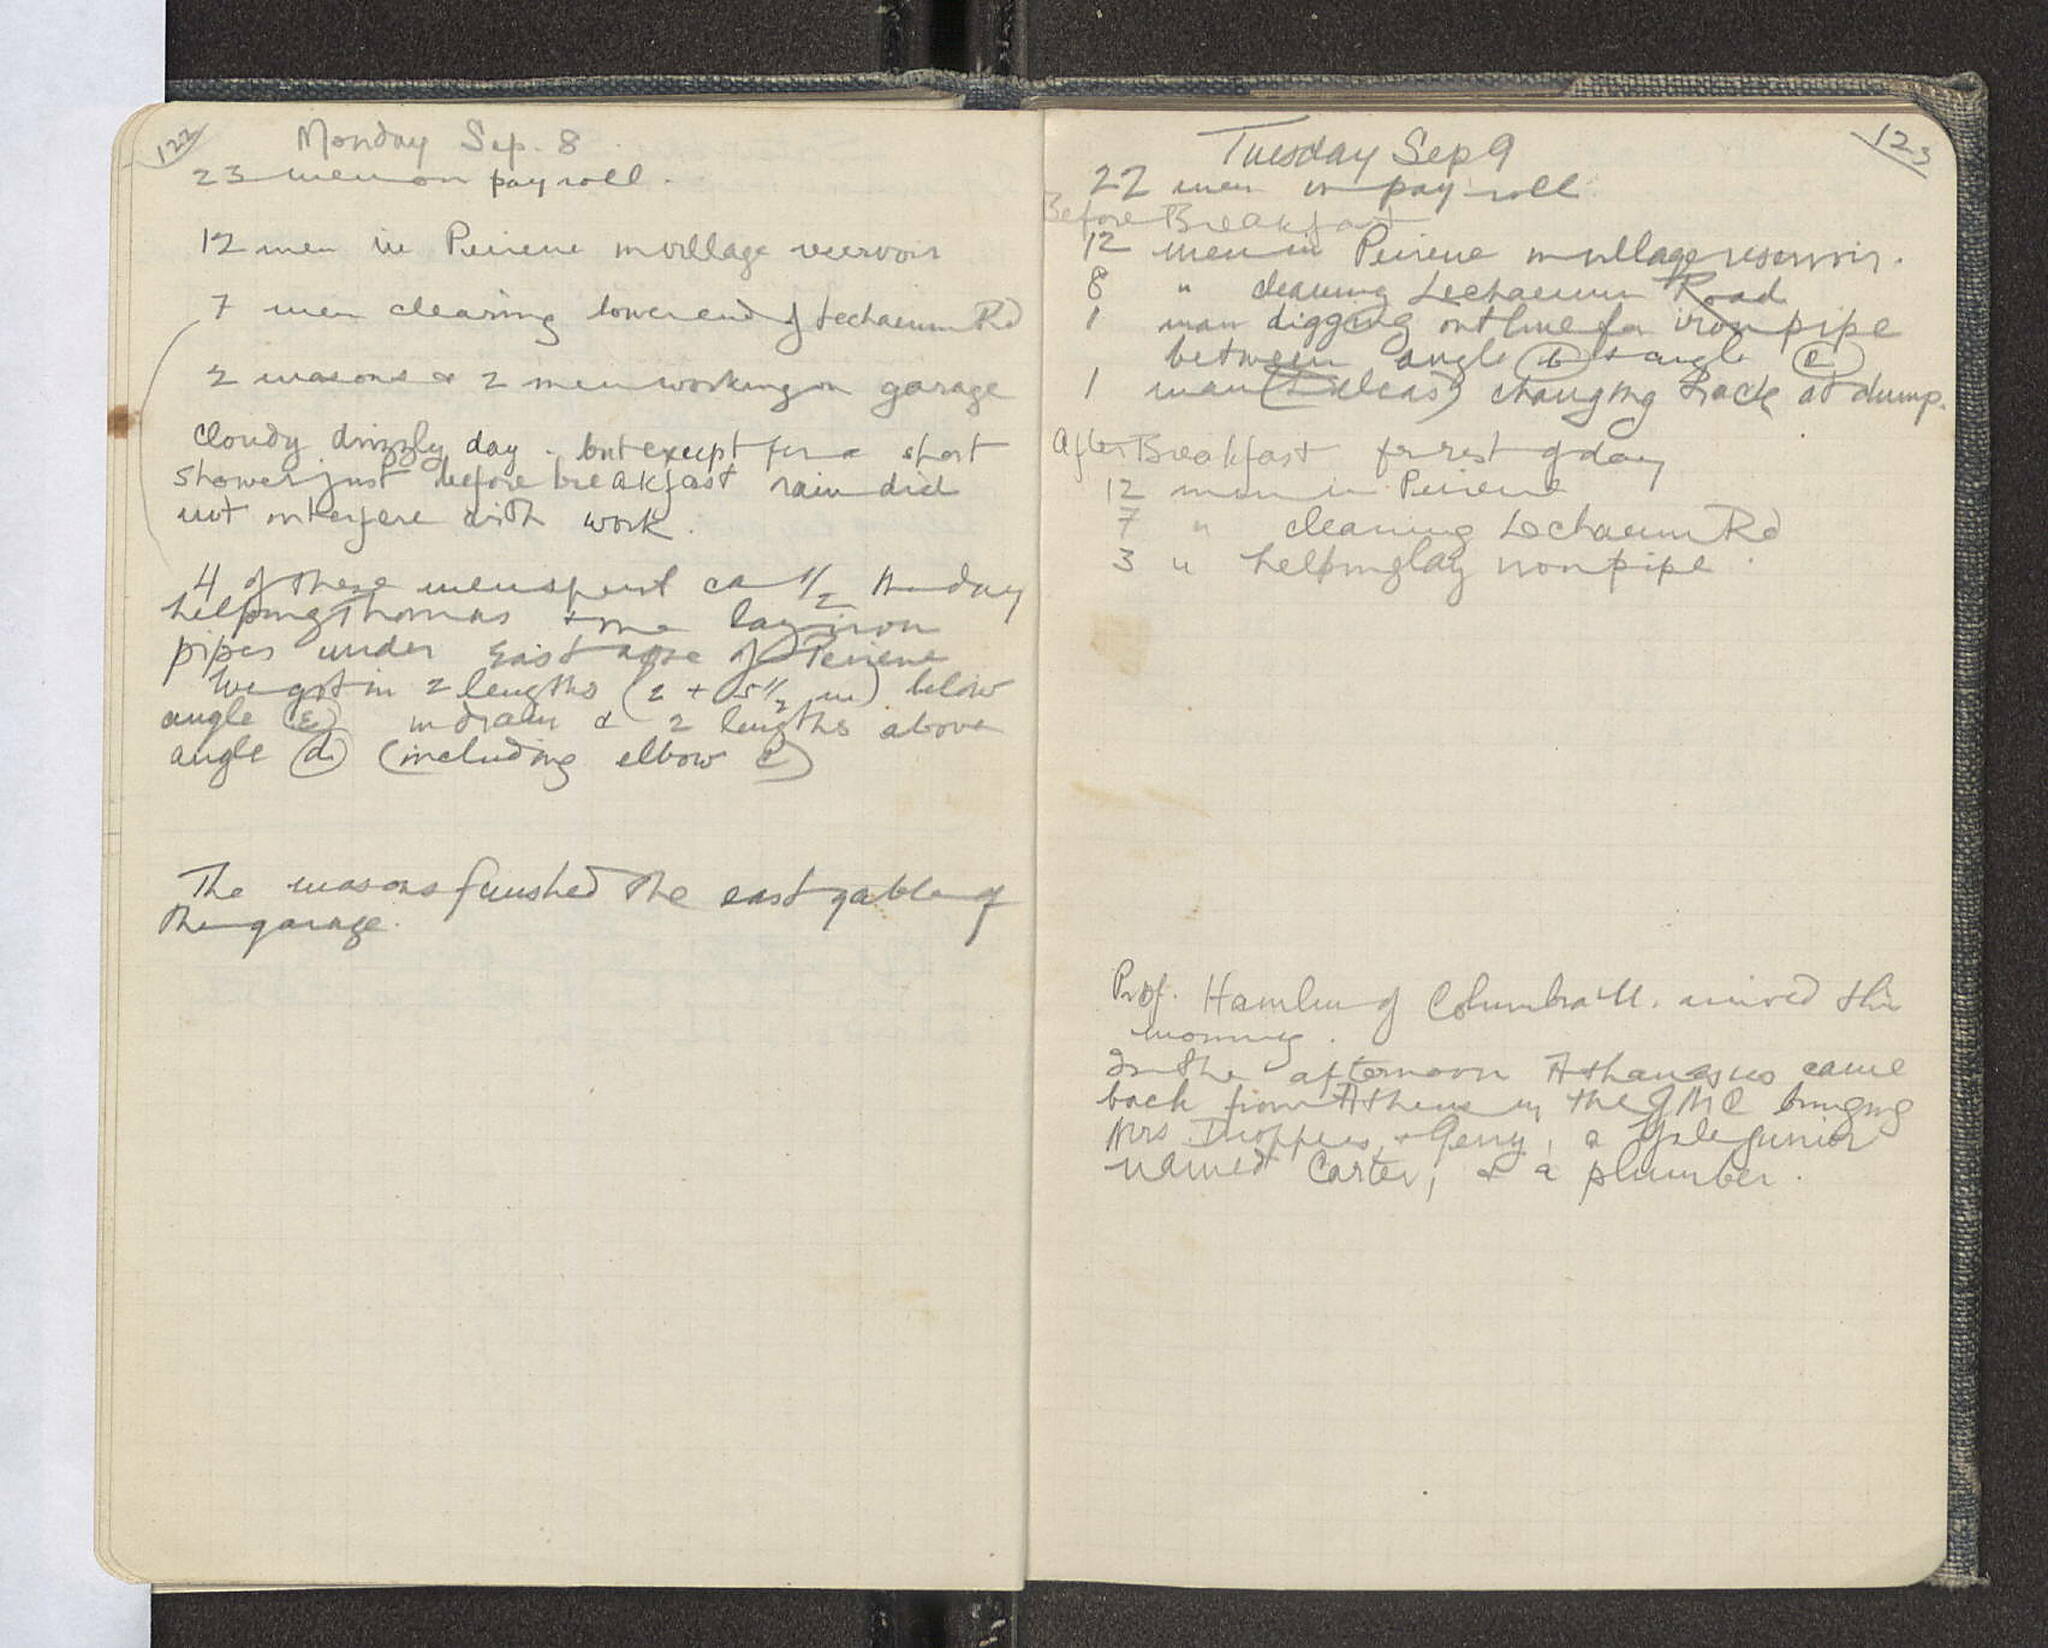 122
Monday Sep. 8
23 men on pay roll.
12 men in Peirene in village reservoir
7 men clearing lower end of Lechaeum Rd
2 masons & 2 men working on garage
Cloudy drizzly day - but except for a short
shower just before breakfast rain did
not interfere with work.
4 of these men spent ca 1/2 the day
helping Thomas & me lay iron
pipes under East apse of Peirene
We got in 2 lengths (2 + 5 1/2 m) below
angle in drain & 2 lengths above
angle d (including elbow c)
The masons finished the east gable of
the garage.
123
Tuesday Sep 9
22 men on pay roll
Before Breakfast
12 men in Peirene in village reservoir.
8 " clearing Lechaeum Road
1 man digging out line for iron pipe
between angle b & angle c
1 man changing track at dump.
After Breakfast for rest of day
12 men in Peirene
7 " clearing Lechaeum Rd
3 " helping lay iron pipe.
Prof. Hamlin of Columbia U. arrived this
morning.
In the afternoon Athanasios came
back from Athens in the GMC bringing
Mrs Droppers & Gerry, a Yale junior
named Carter, & a plumber.